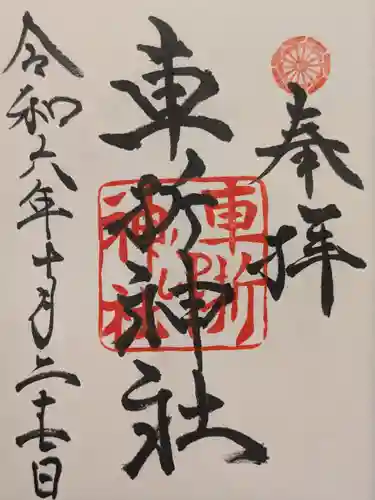 奉拝
車折神社
車折
神社
令和六年十月二十七日